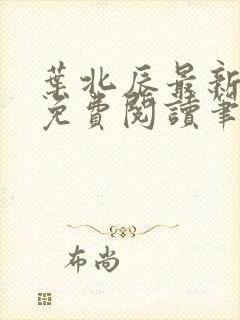 葉北辰最新
免費閱讀筆
布尚